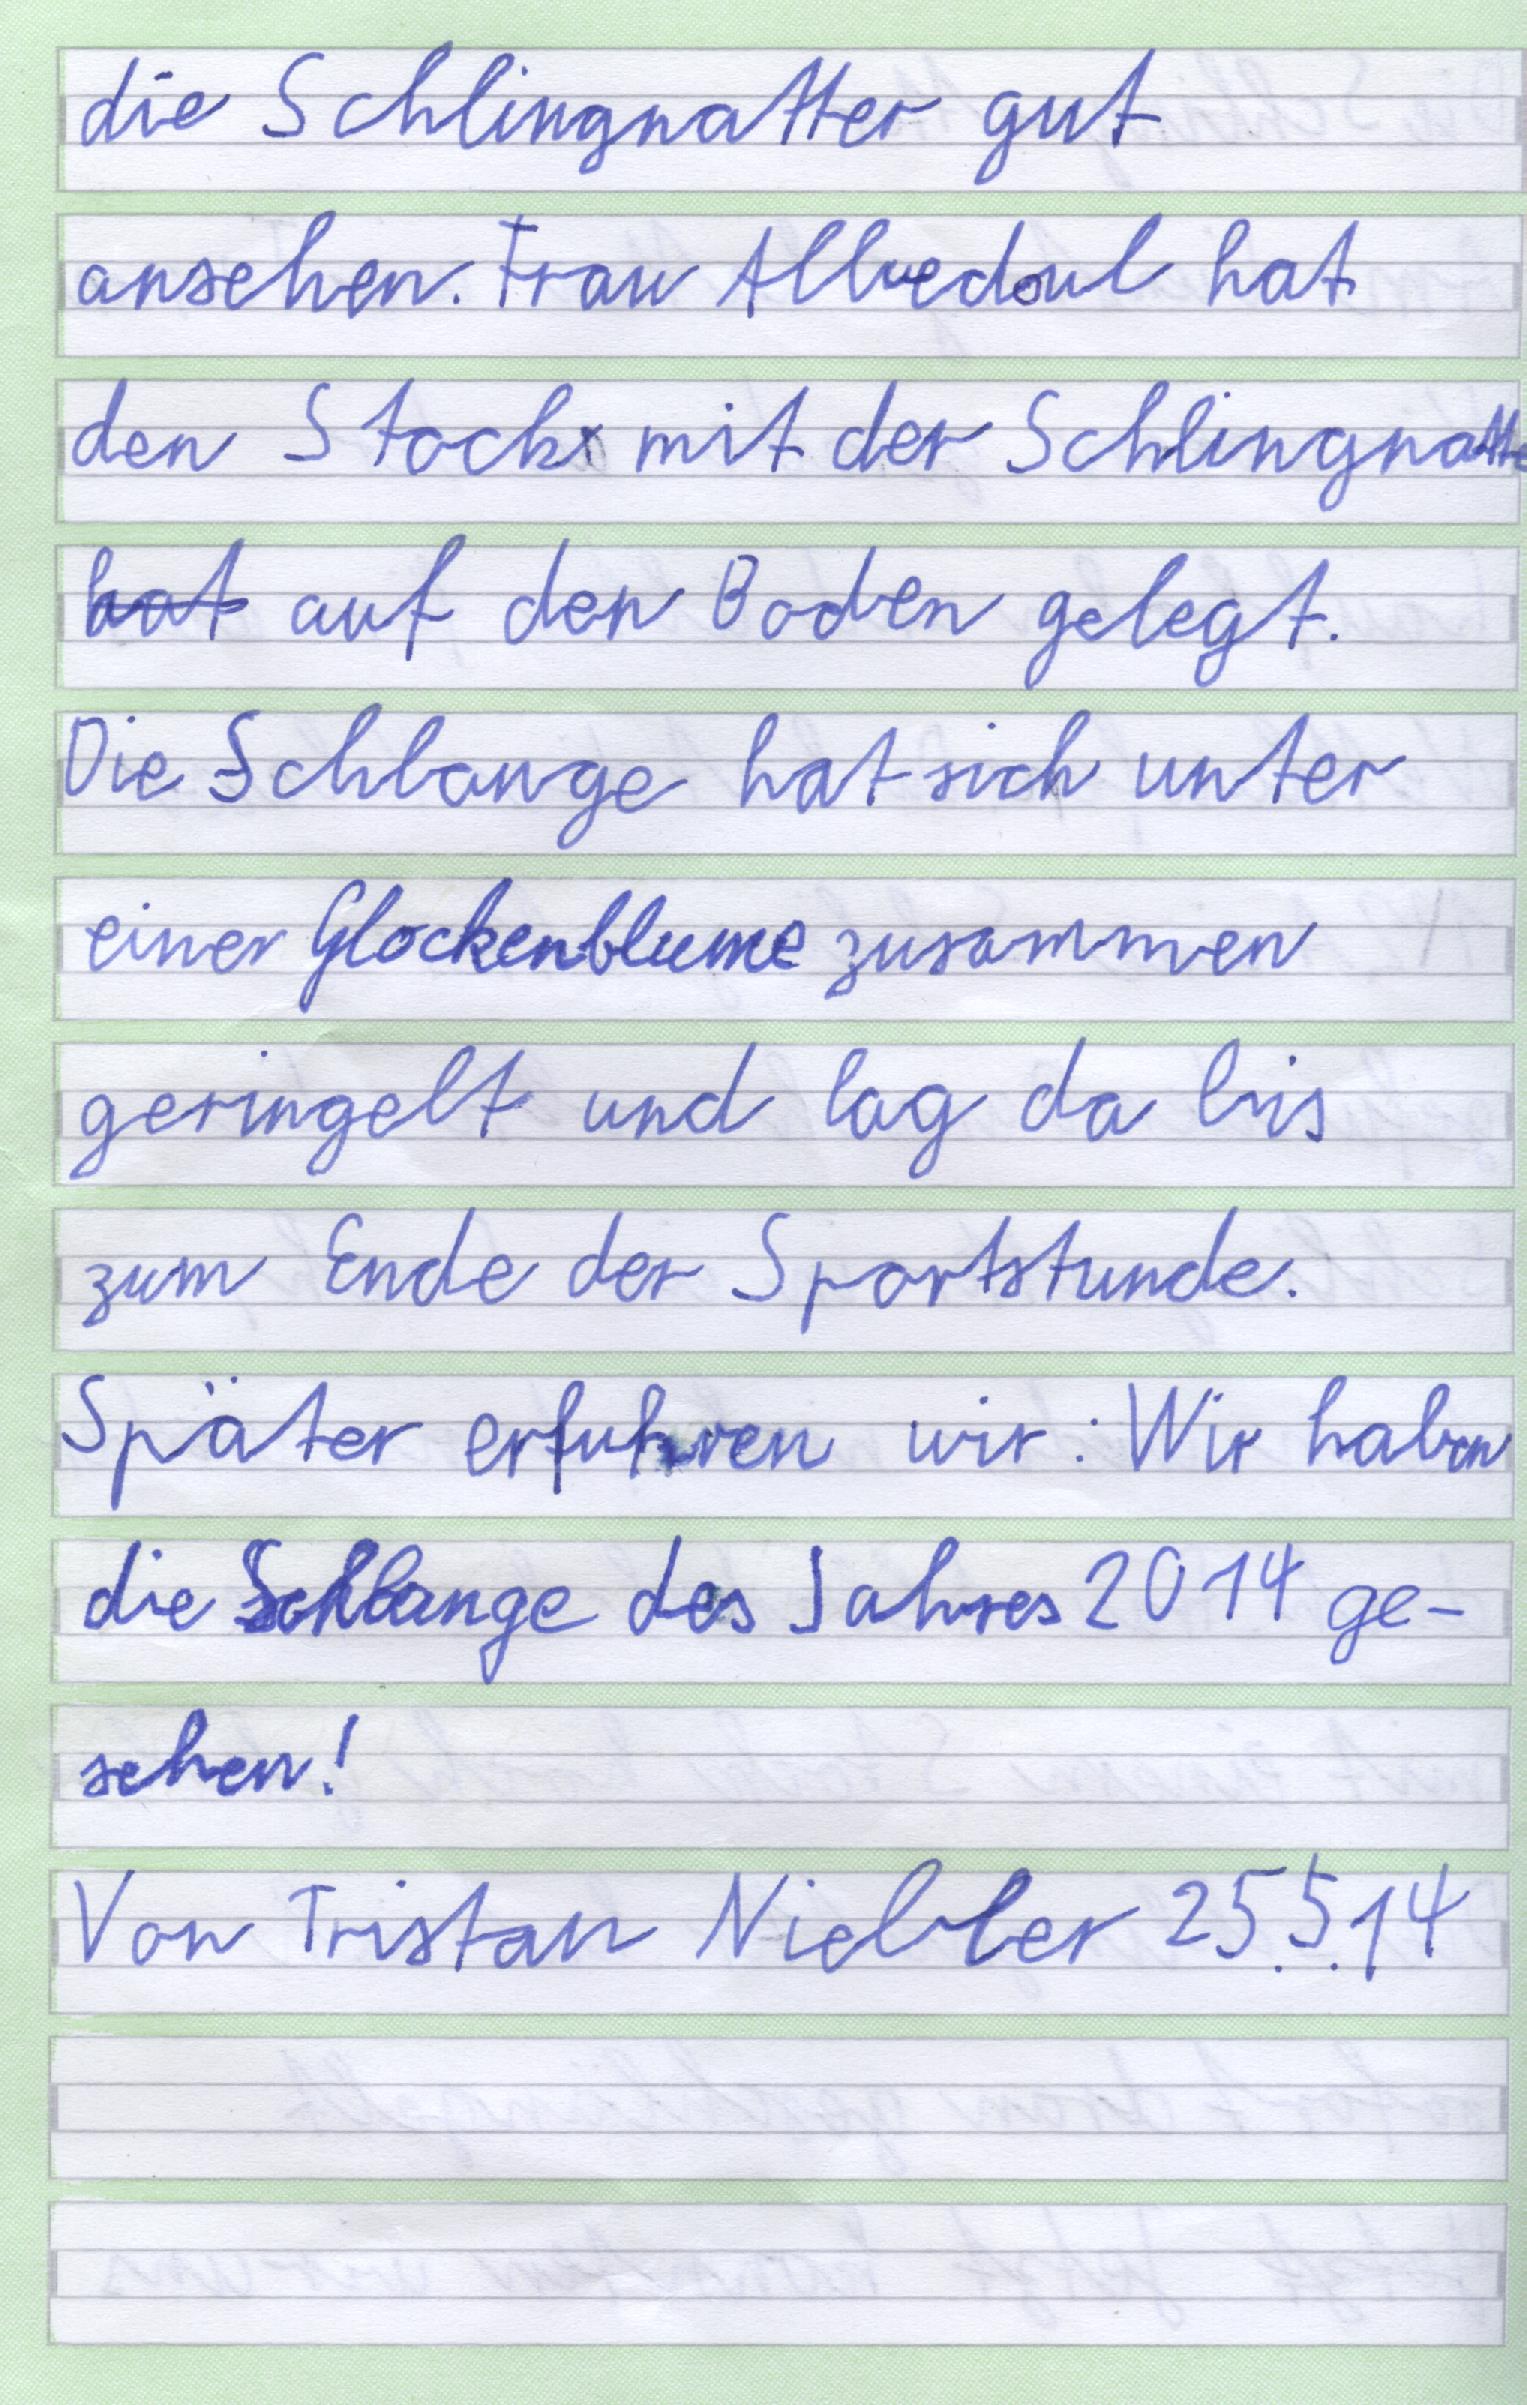 die Schlingnatter gut
ansehen. Frau hat
den Stock mit der Schlingnatte
hat auf den Boden gelegt.
Die Schlange hat sich unter
einer Glockenblume zusammen
geringelt und lag da bis
zum Ende der Sportstunde.
Später erfuhren wir: Wir haben
die Schlange des Jahres 2014 ge-
sehen!
Von Tristan Niebler 25.5.14